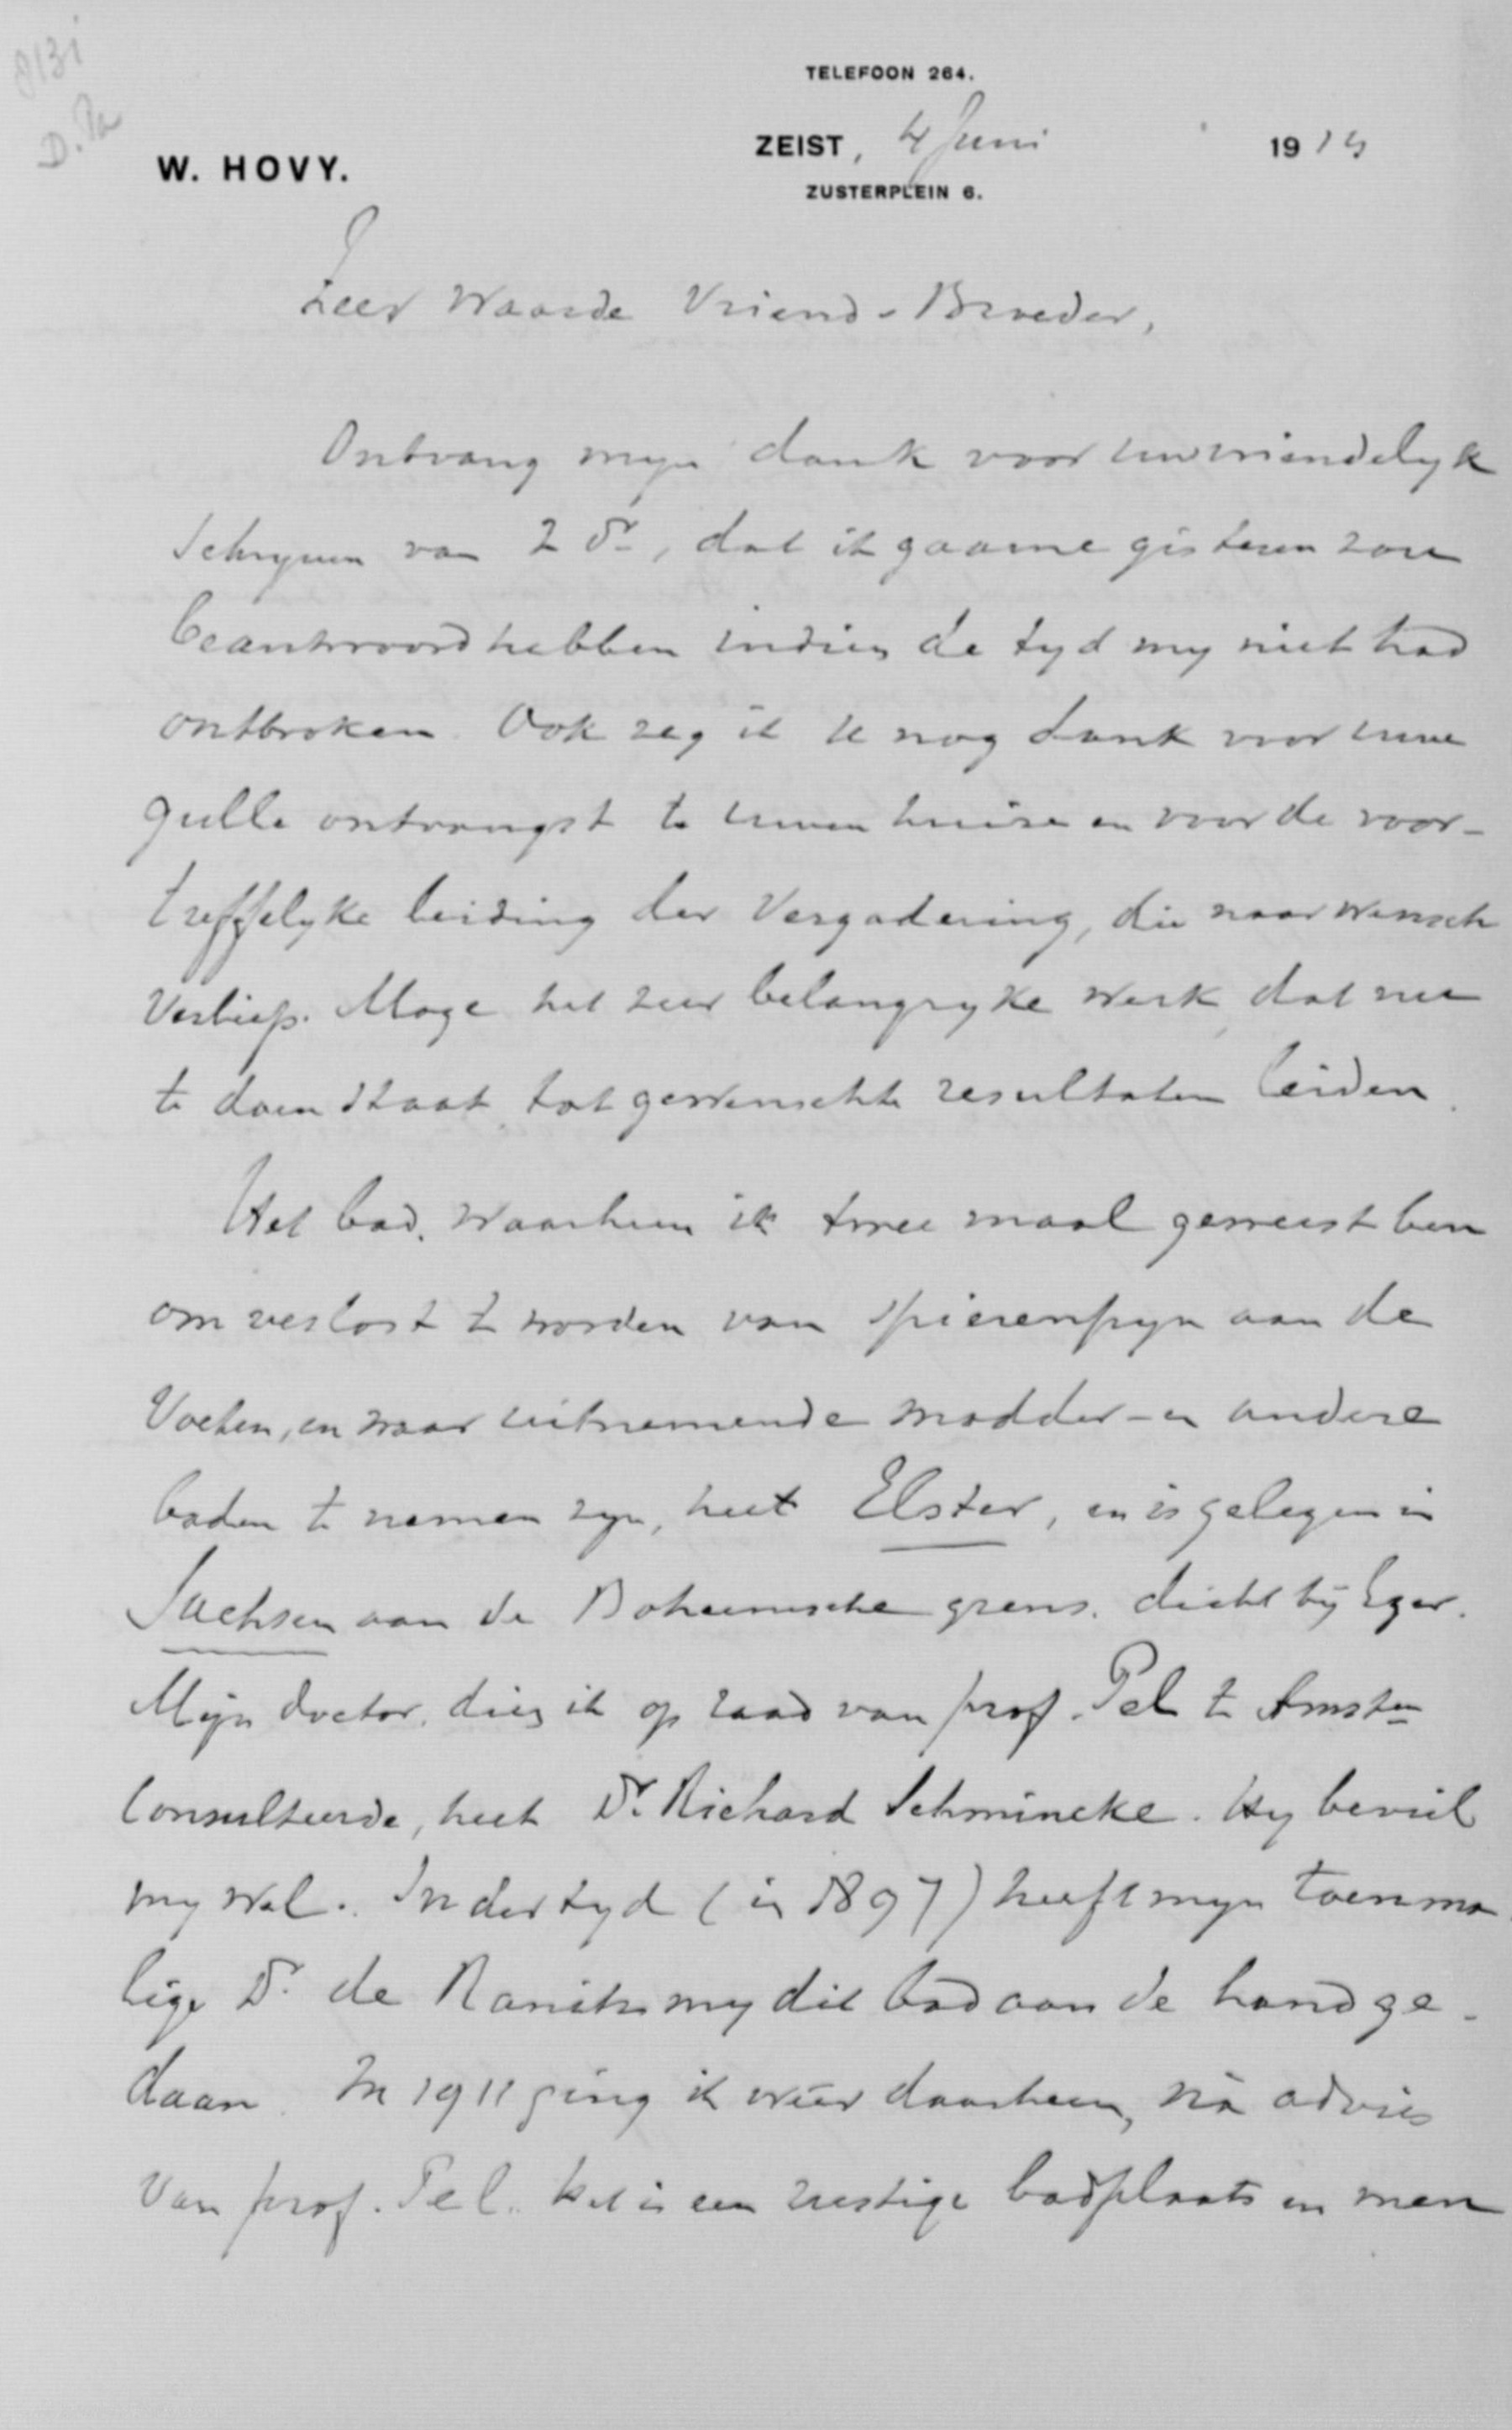 TELEFOON 264.
ZEIST, 4 Juni 1914
W. HOVY.
ZUSTERPLEIN 6.
Zeer Waarde Vriend & Broeder,
Ontvang myn dank voor uw vriendelyk
schryven van 2 dr, dat ik gaarne gisteren zou
beantwoord hebben indien de tyd my niet had
ontbroken. Ook zeg ik U nog dank voor uwe
gulle ontvangst te uwen huize en voor de voor-
treffelyke leiding der Vergadering, die naar wensch
verliep. Moge het zeer belangryke werk, dat nu
te doen staat, tot gewenschte resultaten leiden.
Het bad, waarheen ik twee maal geweest ben
om verlost te worden van spierenpyn aan de
Voeten, en waar uitnemende modder- en andere
baden te nemen zyn, heet Elster, en is gelegen in
Sachsen aan de Boheemsche grens, dicht bij Eger.
Mijn doctor, dien ik op raad van prof. Pel te Amstm
Consulteerde, heet Dr. Richard Schmincke. Hy beviel
my wel. Indertyd (in 1897) heeft myn toenma-
lige Dr. de Ranitz my dit bad aan de hand ge-
daan. In 1911 ging ik weer daarheen, na advies
van prof. Pel. het is een rustige badplaats en men